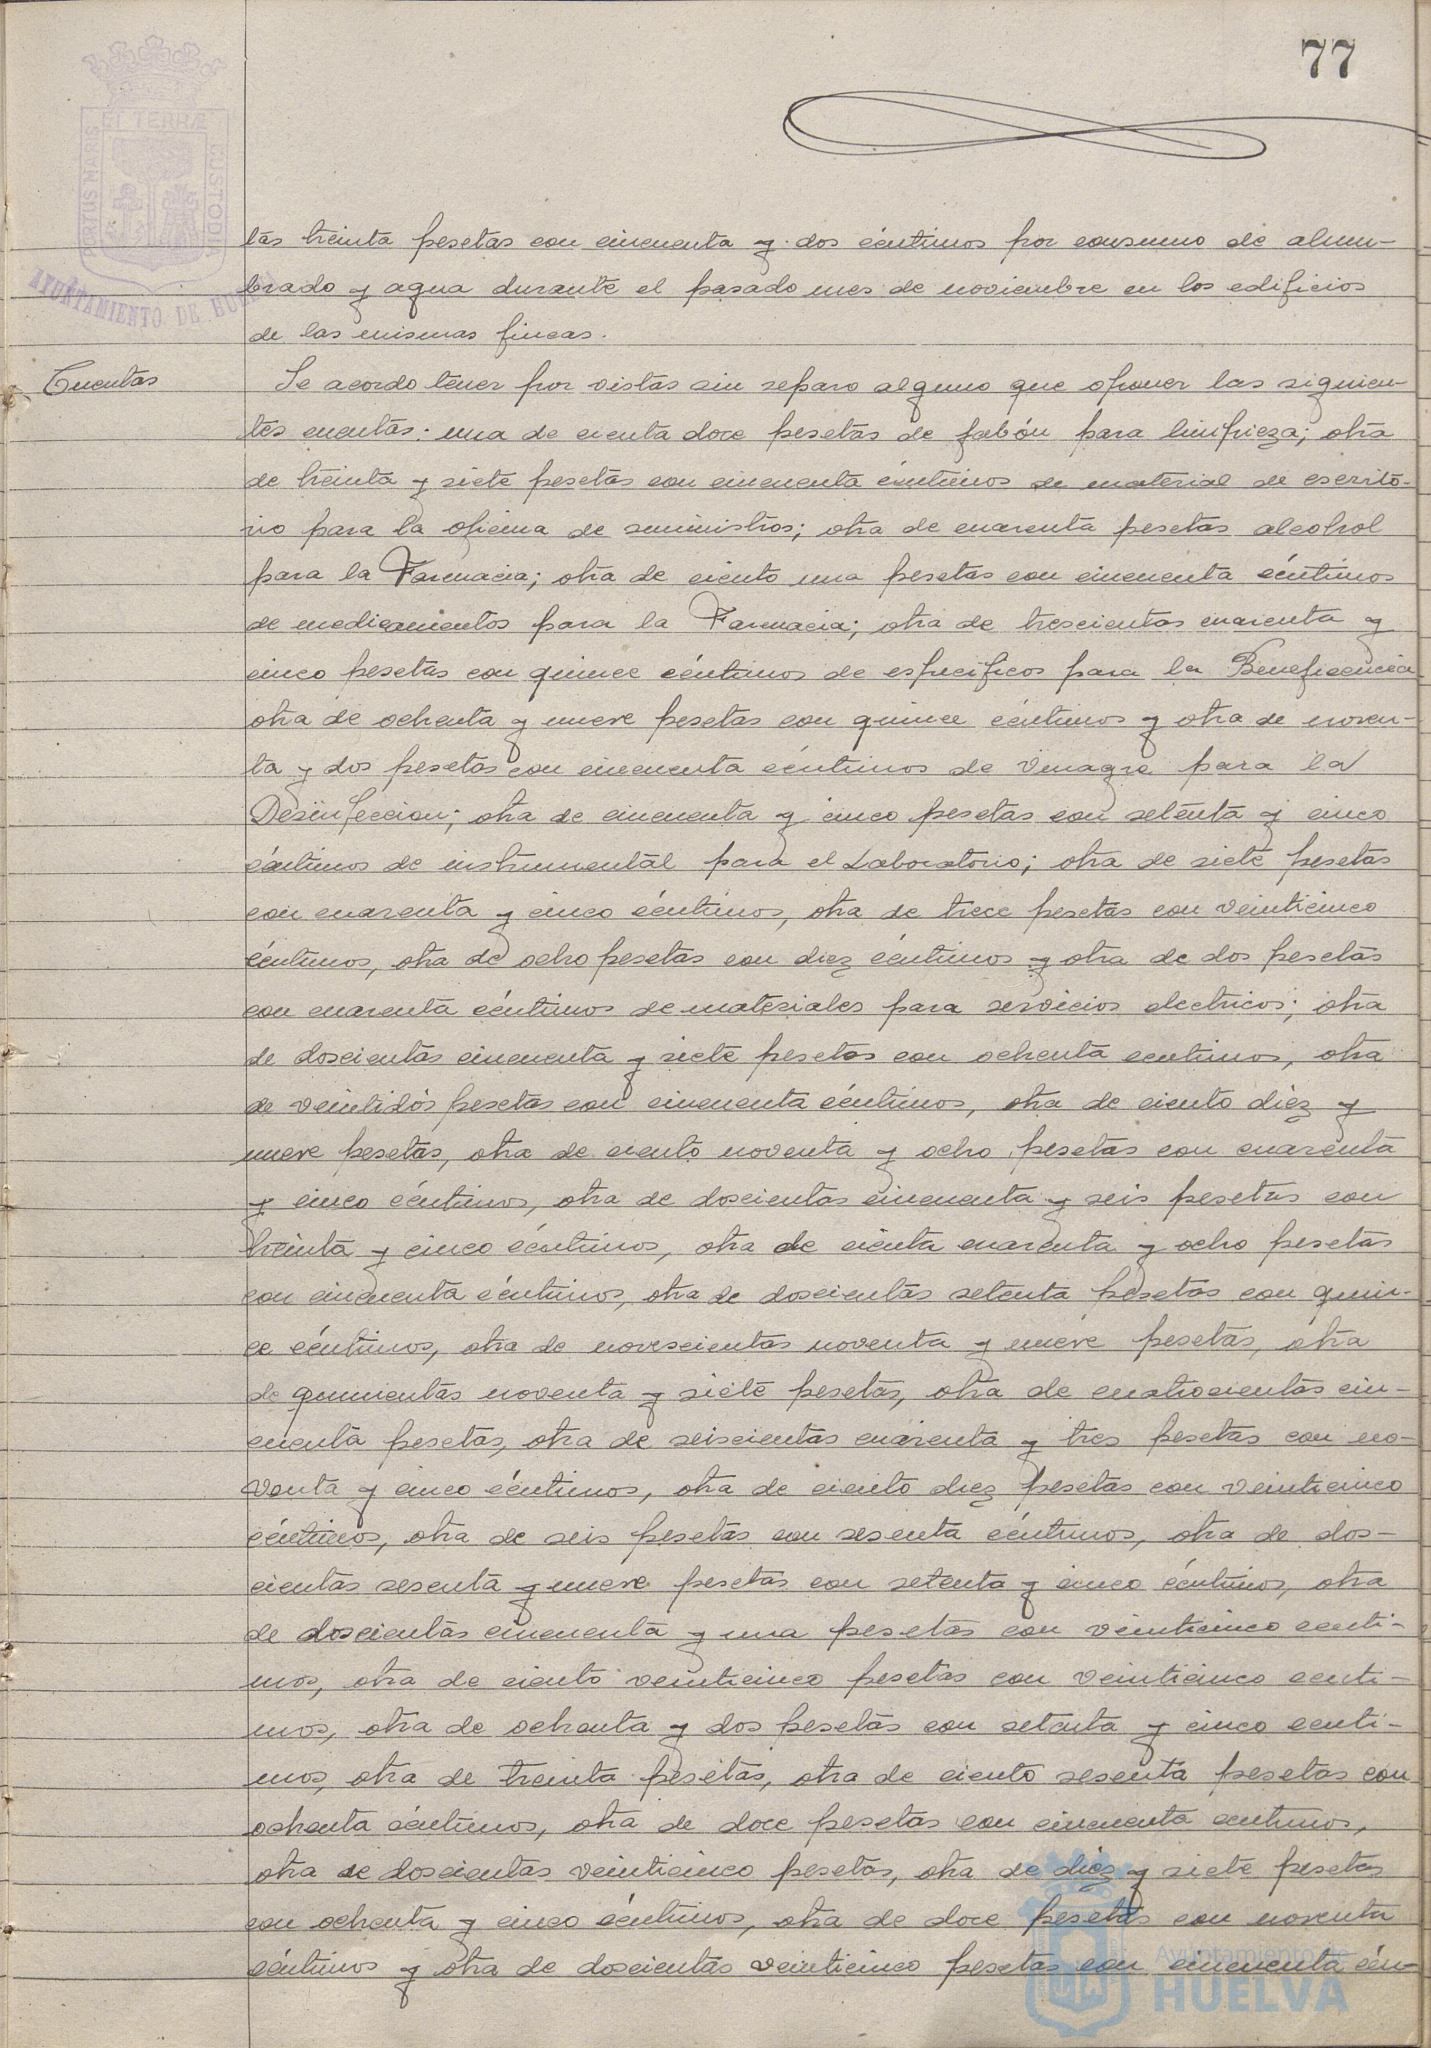 77
PORTUS MARIS ET TERRÆ CUSTODIA
AYUNTAMIENTO DE HUELVA
tas treinta pesetas con cincuenta y dos céntimos por consumo de alum-
brado y agua durante el pasado mes de noviembre en los edificios
de las mismas fincas.
Cuentas
Se acordo tener por vistas sin reparo alguno que oponer las siguien-
tes cuentas: una de cienta doce pesetas de jabón para limpieza; otra
de treinta y siete pesetas con cincuenta céntimos de material de escrito-
rio para la oficina de suministros; otra de cuarenta pesetas alcohol
para la Farmacia; otra de ciento una pesetas con cincuenta céntimos
de medicamentos para la Farmacia; otra de trescientas cuarenta y
cinco pesetas con quince céntimos de especificos para la Beneficencia
otra de ochenta y nueve pesetas con quince céntimos y otra de noven-
ta y dos pesetas con cincuenta céntimos de vinagre para la
Desinfeccion; otra de cincuenta y cinco pesetas con setenta y cinco
céntimos de instrumental para el Laboratorio; otra de siete pesetas
con cuarenta y cinco céntimos, otra de trece pesetas con veinticinco
céntimos, otra de ocho pesetas con diez céntimos y otra de dos pesetas
con cuarenta céntimos de materiales para servicios electricos; otra
de doscientas cincuenta y siete pesetas con ochenta centimos, otra
de veintidós pesetas con cincuenta céntimos, otra de ciento diez y
nueve pesetas, otra de ciento noventa y ocho pesetas con cuarenta
y cinco céntimos, otra de doscientas cincuenta y seis pesetas con
treinta y cinco céntimos, otra de cienta cuarenta y ocho pesetas
con cincuenta céntimos, otra de doscientas setenta pesetas con quin-
ce céntimos, otra de novescientas noventa y nueve pesetas, otra
de quinientas noventa y siete pesetas, otra de cuatrocientas cin-
cuenta pesetas, otra de seiscientas cuarenta y tres pesetas con no-
venta y cinco céntimos, otra de ciento diez pesetas con veinticinco
céntimos, otra de seis pesetas con sesenta céntimos, otra de dos-
cientas sesenta y nueve pesetas con setenta y cinco céntimos, otra
de doscientas cincuenta y una pesetas con veinticinco centi-
mos, otra de ciento veinticinco pesetas con veinticinco centi-
mos, otra de ochenta y dos pesetas con setenta y cinco centi-
mos, otra de treinta pesetas, otra de ciento sesenta pesetas con
ochenta céntimos, otra de doce pesetas con cincuenta centimos,
otra de doscientas veinticinco pesetas, otra de diez y siete pesetas
con ochenta y cinco céntimos, otra de doce pesetas con noventa
céntimos y otra de doscientas veinticinco pesetas con cincuenta cén-
Ayuntamiento de
HUELVA